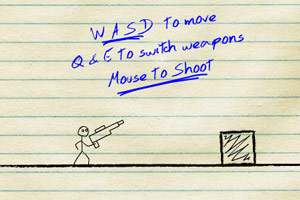 WASD to move
Q & E to switch weapons
Mouse to Shoot